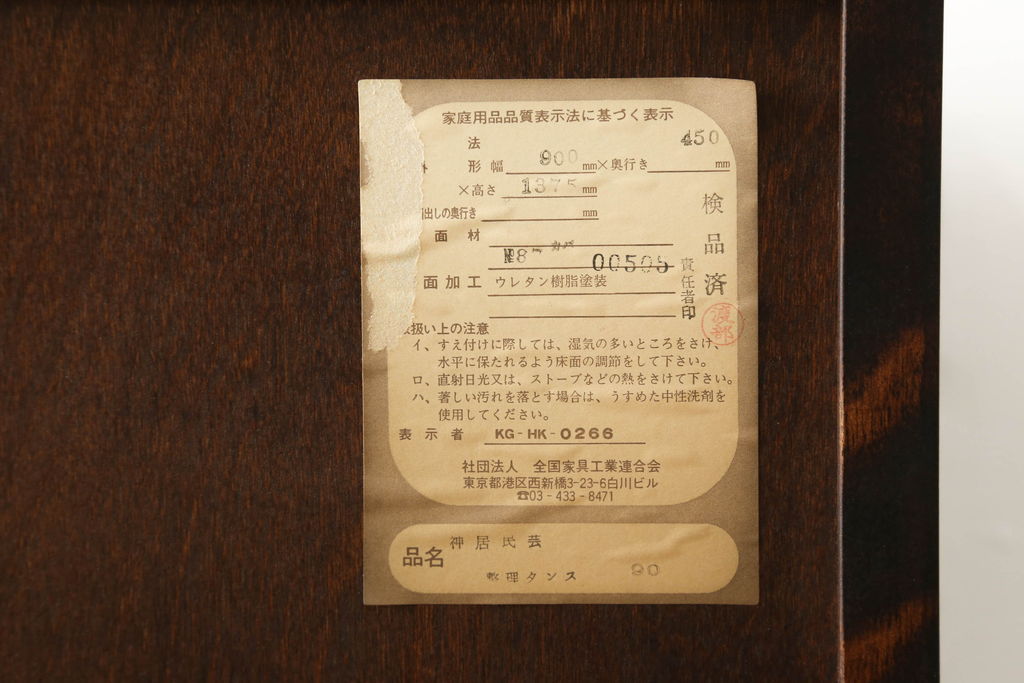 家庭用品品質表示法に基づく表示
法
450
形 幅 900 mm×奥行き mm
×高さ 1375 mm
出しの奥行き mm
面 材
№8 カバ 00505
面加工 ウレタン樹脂塗装
検品済
責任者印
渡部
扱い上の注意
イ、すえ付けに際しては、湿気の多いところをさけ、
水平に保たれるよう床面の調節をして下さい。
ロ、直射日光又は、ストーブなどの熱をさけて下さい。
ハ、著しい汚れを落とす場合は、うすめた中性洗剤を
使用してください。
表 示 者 KG-HK-0266
社団法人 全国家具工業連合会
東京都港区西新橋3-23-6白川ビル
☎03-433-8471
品名 神居民芸
整理タンス 90